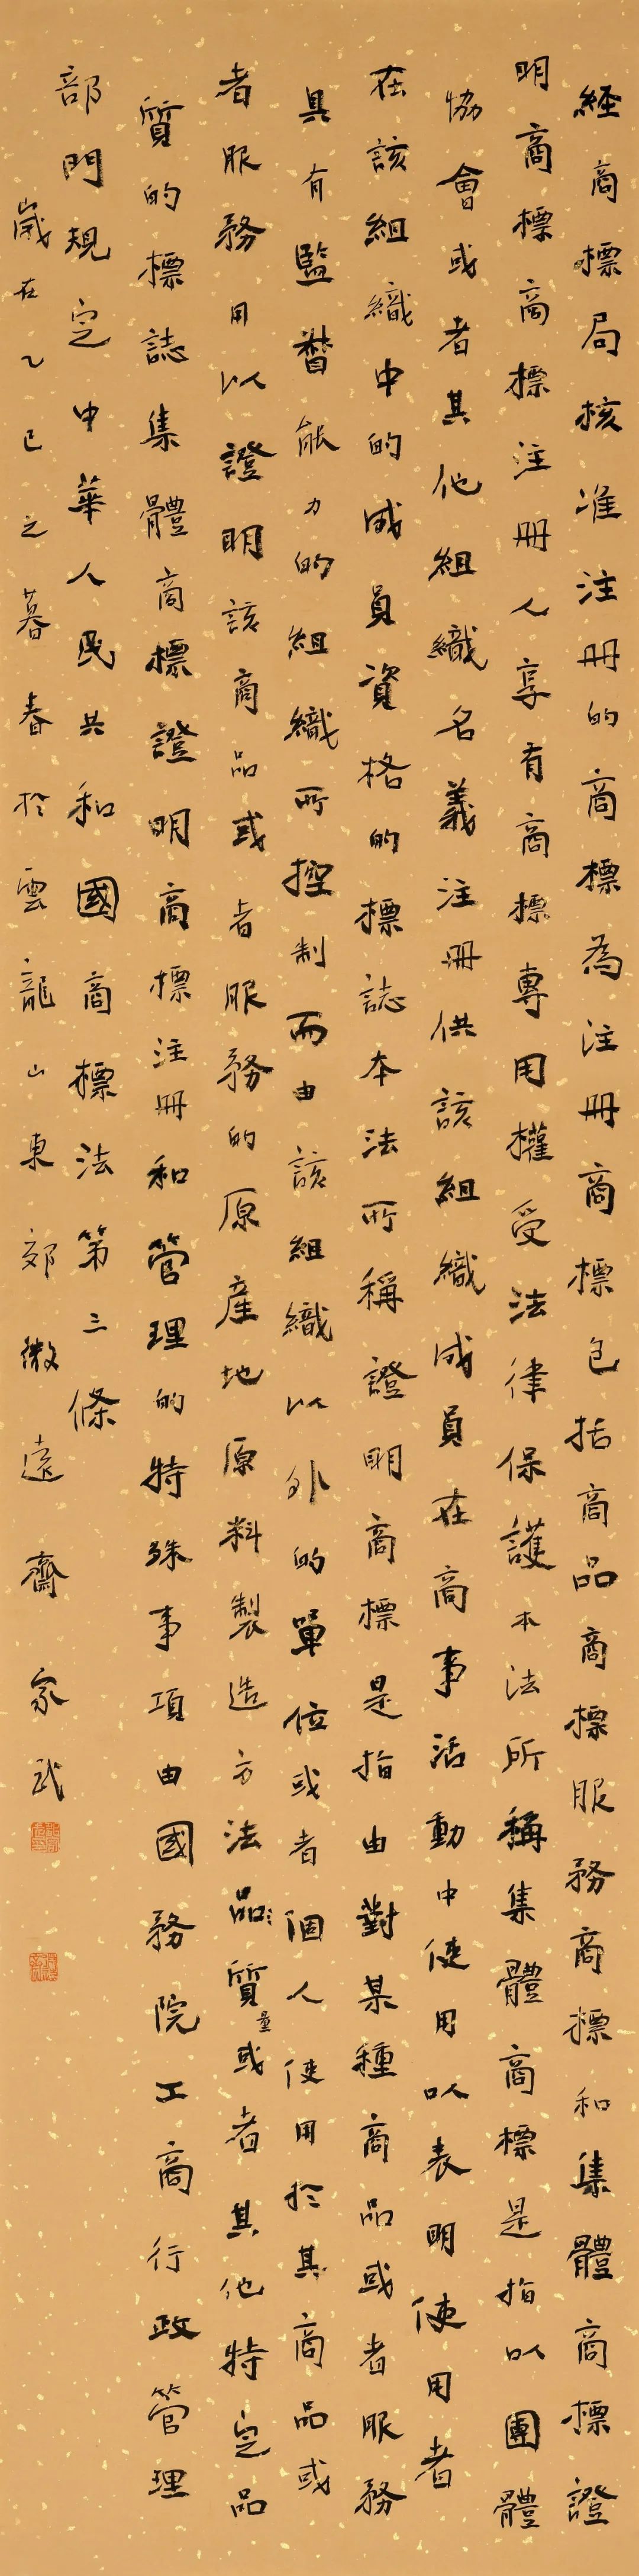 經商標局核准注冊的商標為注冊商標包括商品商標服務商標和集體商標證
明商標商標注冊人享有商標專用權受法律保護本法所稱集體商標是指以團體
協會或者其他組織名義注冊供該組織成員在商事活動中使用以表明使用者
在該組織中的成員資格的標誌本法所稱證明商標是指由對某種商品或者服務
具有監督能力的組織所控制而由該組織以外的單位或者個人使用於其商品或
者服務用以證明該商品或者服務的原產地原料製造方法品質量或者其他特定品
質的標誌集體商標證明商標注冊和管理的特殊事項由國務院工商行政管理
部門規定中華人民共和國商標法第三條
歲在乙巳之暮春於雲龍山東郊微遠齋家武